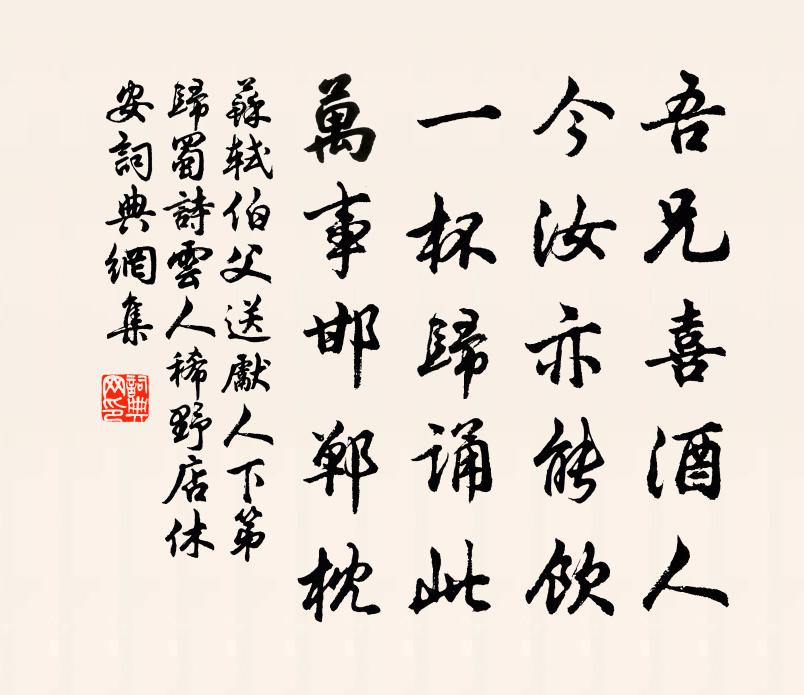 吾兄喜酒人
今汝亦能飲
一杯歸誦此
萬事邯鄲枕
蘇軾伯父送獻人下第
歸蜀詩雲人稀野店休
安詞典網集
詞典
网印